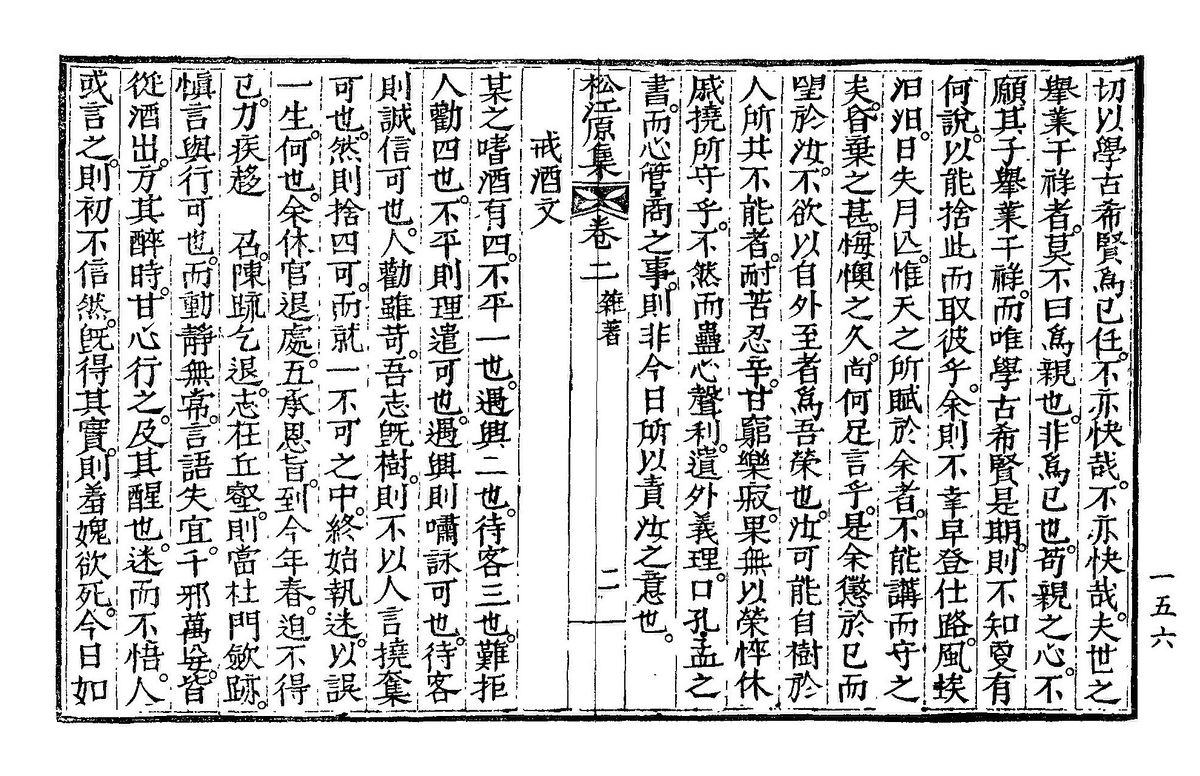 切以學古希賢爲己任。不亦快哉。不亦快哉。夫世之
擧業干祥者。莫不曰爲親也。非爲己也。苟親之心。不
願其子擧業干祥。而唯學古希賢是期。則不知更有
何說。以能捨此而取彼乎。余則不幸早登仕路。風埃
汩汩。日失月亾。惟天之所賦於余者。不能講而守之
矣。昏棄之甚。悔懊之久。尙何足言乎。是余懲於已而
望於汝。不欲以自外至者爲吾榮也。汝可能自樹於
人所共不能者。耐苦忍辛。甘窮樂寂。果無以榮悴休
戚撓所守乎。不然而蠱心聲利。遺外義理。口孔孟之
書。而心管商之事。則非今日所以責汝之意也。
松江原集 卷二 雜著 二
戒酒文
某之嗜酒有四。不平一也。遇興二也。待客三也。難拒
人勸四也。不平則理遣可也。遇興則嘯詠可也。待客
則誠信可也。人勸雖苛。吾志旣樹。則不以人言撓奪
可也。然則捨四可。而就一不可之中。終始執迷。以誤
一生。何也。余休官退處。五承恩旨。到今年春。迫不得
已。力疾趍 召。陳疏乞退。志在丘壑。則當杜門斂跡。
愼言與行可也。而動靜無常。言語失宜。千邪萬妄。皆
從酒出。方其醉時。甘心行之。及其醒也。迷而不悟。人
或言之。則初不信然。旣得其實。則羞媿欲死。今日如
一五六